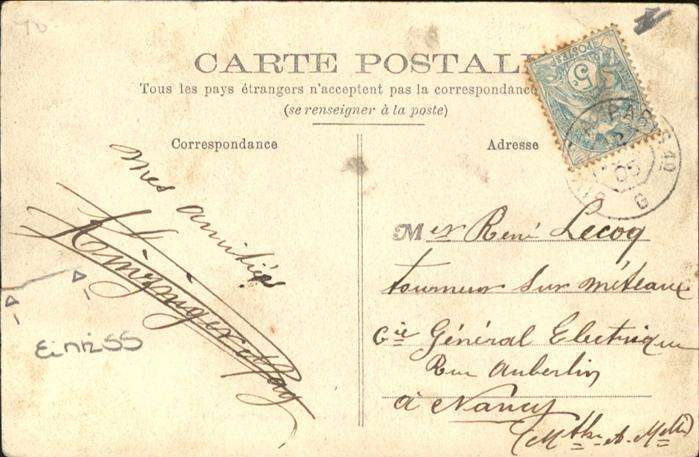 CARTE POSTALE
Tous les pays étrangers n'acceptent pas la correspondance
(se renseigner à la poste)
Correspondance
Adresse
POSTES
5
PARIS
05
mes amitiés
Einriss
Mer René Lecoq
tourneur sur méteaux
Cie Général Electrique
Rue Auberlin
à Nancy